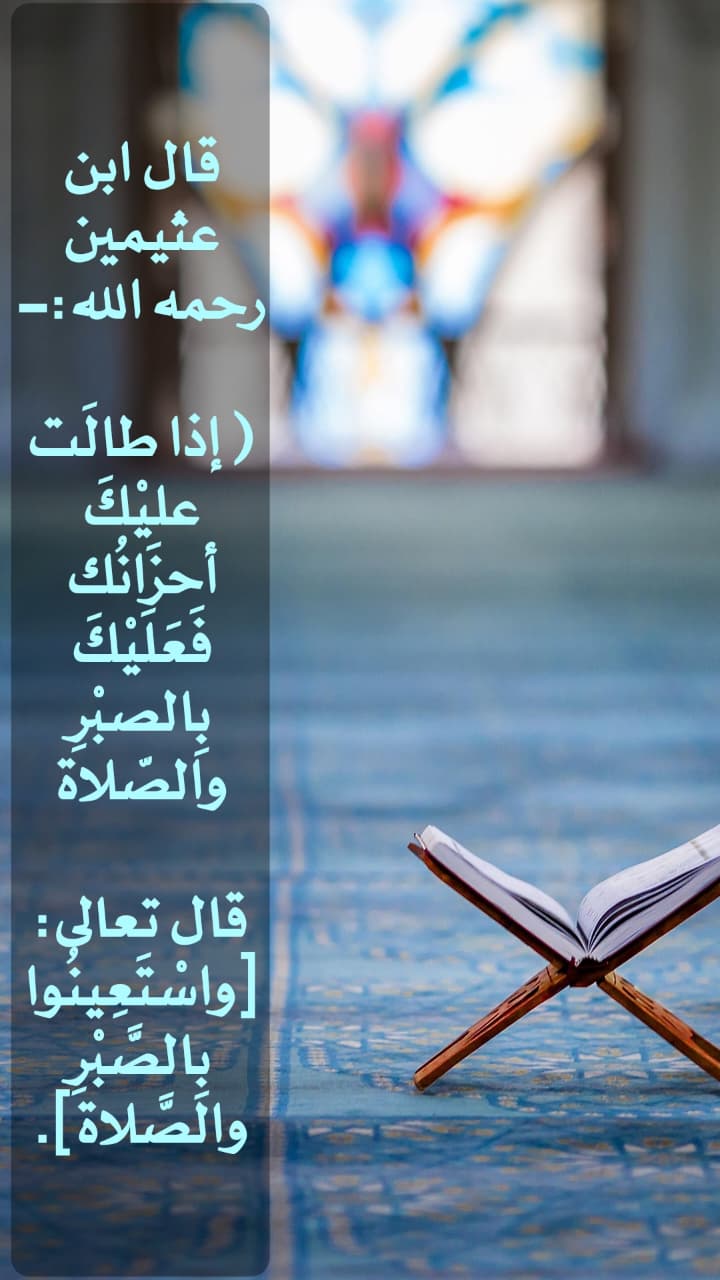 قال ابن
عثيمين
رحمه الله :-
( إذا طالَت
عليْكَ
أحزَانُك
فَعَلَيْكَ
بِالصبْرِ
والصّلاة
قال تعالى:
[واسْتَعِينُوا
بِالصَّبْرِ
والصَّلاة].